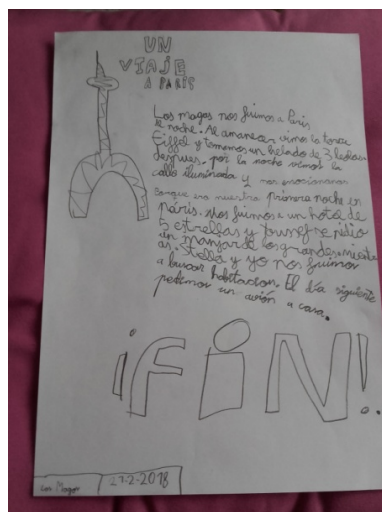 UN
VIAJE
A PARÍS
Los magos nos fuimos a París
de noche. Al amanecer vimos la torre
Eiffel y tomamos un helado de 3
despues. por la noche vimos la
calle iluminada y nos emocionamos
porque era nuestra primera noche en
páris. Nos fuimos a un hotel de
5 estrellas y pidio
un manjar de los grandes mientr
as. Stella y yo nos fuimos
a buscar habitacion. El día siguiente
pedimos un avión a casa.
¡FiN!.
Los Magos
27-2-2018